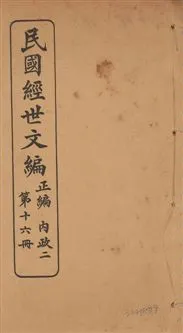 民國經世文編
正編 內政二
第十六冊